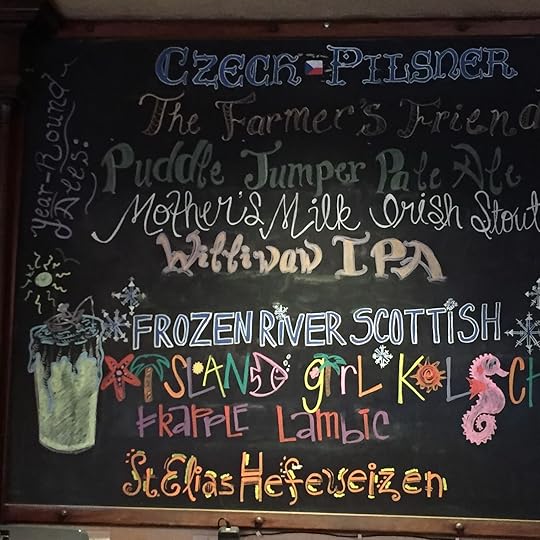 Czech Pilsner
Year-Round Ales:
The Farmer's Friend
Puddle Jumper Pale Ale
Mother's Milk Irish Stout
Williwaw IPA
FROZEN RIVER SCOTTISH
ISLAND girL KOLSCH
FRAPPLE LambiC
St Elias Hefeweizen